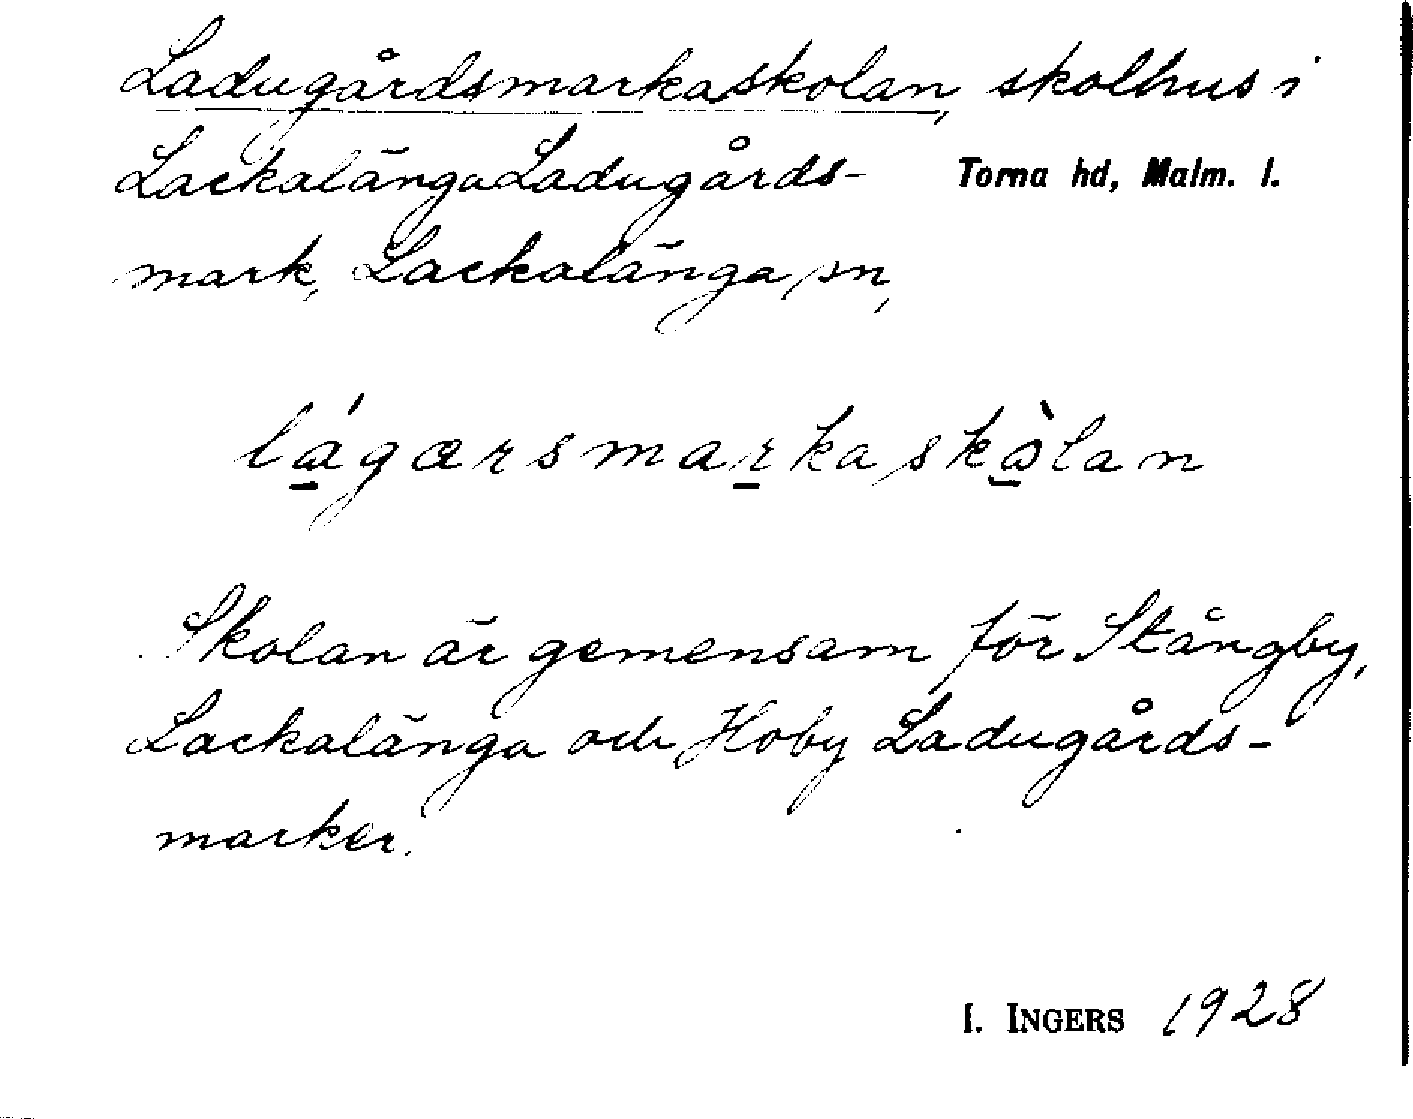 Ladugårdsmarkaskolan, skolhus i
Lackalänga Ladugårds- Torna hd, Malm. l.
mark, Lackalänga sn,
lágarsmarkaskòlan
Skolan är gemensam för Stångby,
Lackalänga och Hoby Ladugårds-
marker.
I. INGERS 1928